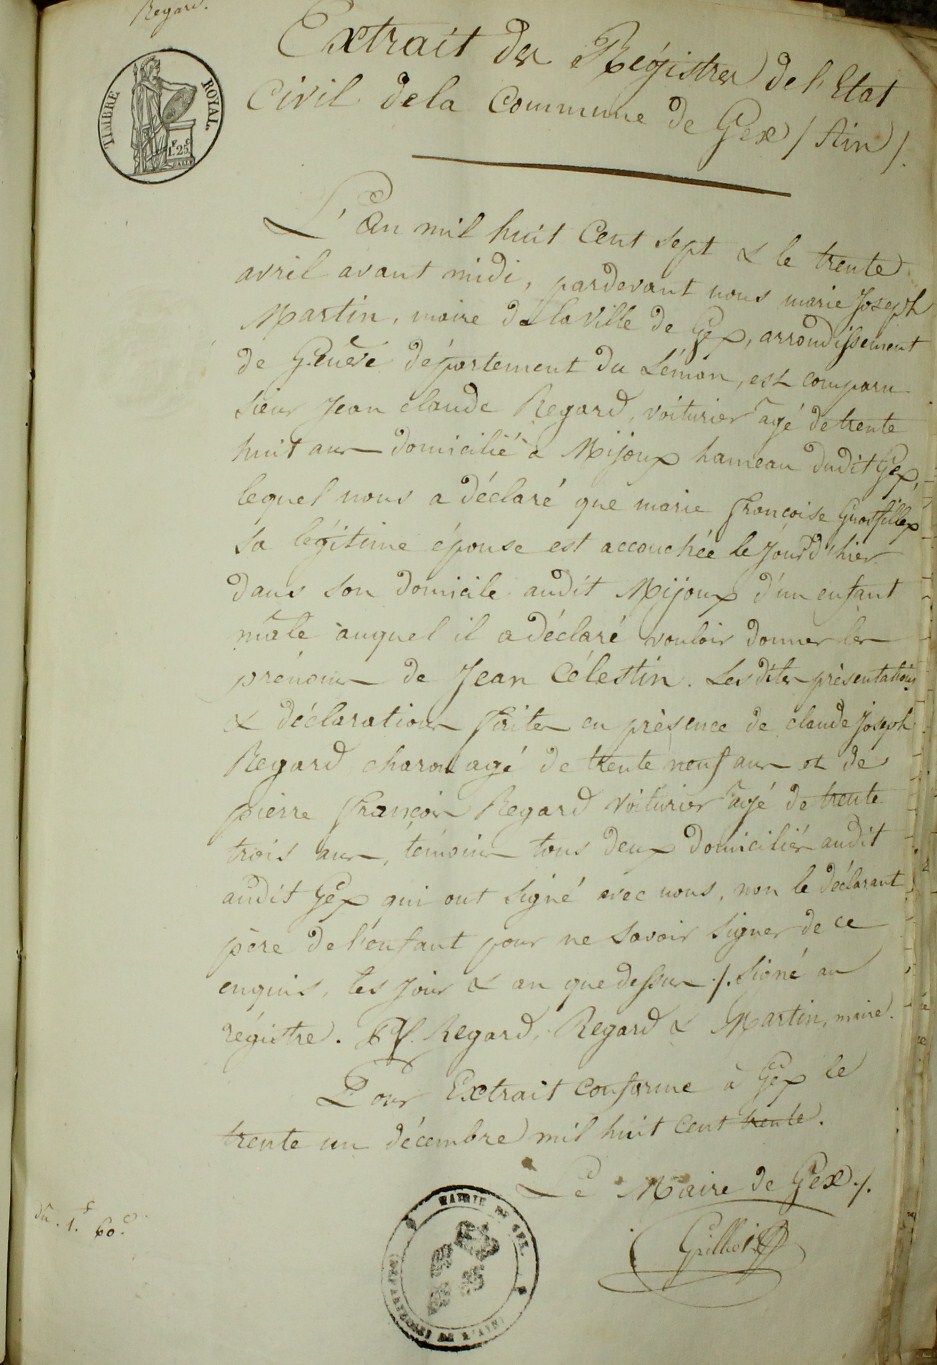 Regard.
TIMBRE ROYAL.
1.F 25.C
Extrait des Régistres de l'Etat
Civil de la Commune de Gex / Ain /.
L'an mil huit cent sept & le trente
avril avant midi, pardevant nous marie Joseph
Martin, maire de la ville de Gex, arrondissement
de Genève département du Léman, est comparu
sieur Jean claude Regard, voiturier agé de trente
huit ans domicilié à Mijoux hameau dudit Gex,
lequel nous a déclaré que marie françoise Grosfillex
sa légitime épouse est accouchée le jourd'hier
dans son domicile audit Mijoux d'un enfant
mâle auquel il a déclaré vouloir donner les
prénoms de Jean Célestin. Lesdites présentations
& déclaration faites en présence de claude Joseph
Regard charon agé de trente neuf ans et de
pierre françois Regard voiturier agé de trente
trois ans, témoins tous deux domiciliés audit
audit Gex qui ont signé avec nous, non le déclarant
père de l'enfant pour ne savoir signer de ce
enquis, les jour & an que dessus /. Signé au
régistre. Regard, Regard & Martin, maire.
Pour Extrait conforme à Gex le
trente un décembre mil huit cent trente.
Le Maire de Gex /.
1.f 60.c
MAIRIE DE GEX.